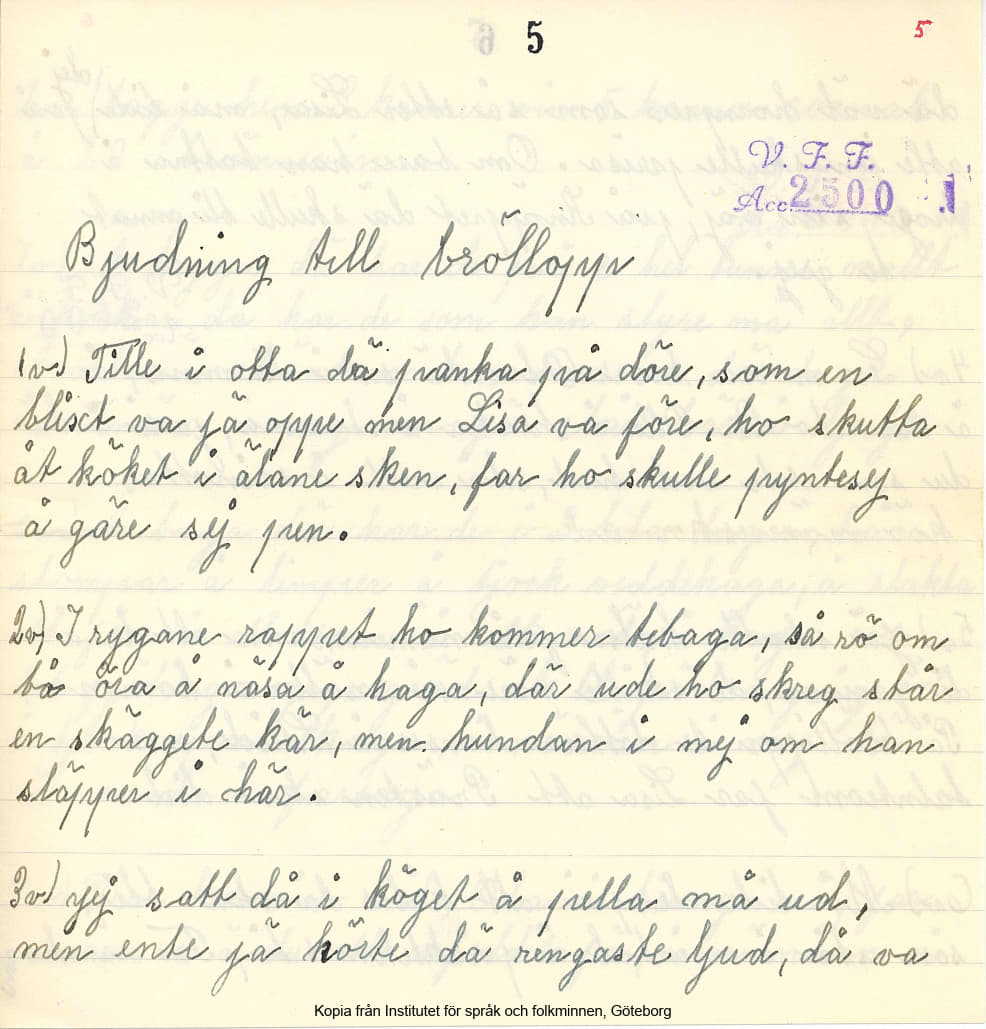 5
5
V. F. F.
Acc. 2500 :1
Bjudning till bröllopp
1v) Tille i otta dä panka på döre, som en
blixt va jä oppe men Lisa va före, ho skutta
åt köket i älane sken, far ho skulle pyntesej
å gäre sej pen.
2v) I rygane rappet ho kommer tebaga, så rö om
bå öra å näsa å haga, där ude ho skreg står
en skäggete kär, men hundan i mej om han
släpper i här.
3v) jej satt då i köget å pella må ud,
men ente jä hörte dä rengaste ljud, då va
Kopia från Institutet för språk och folkminnen, Göteborg